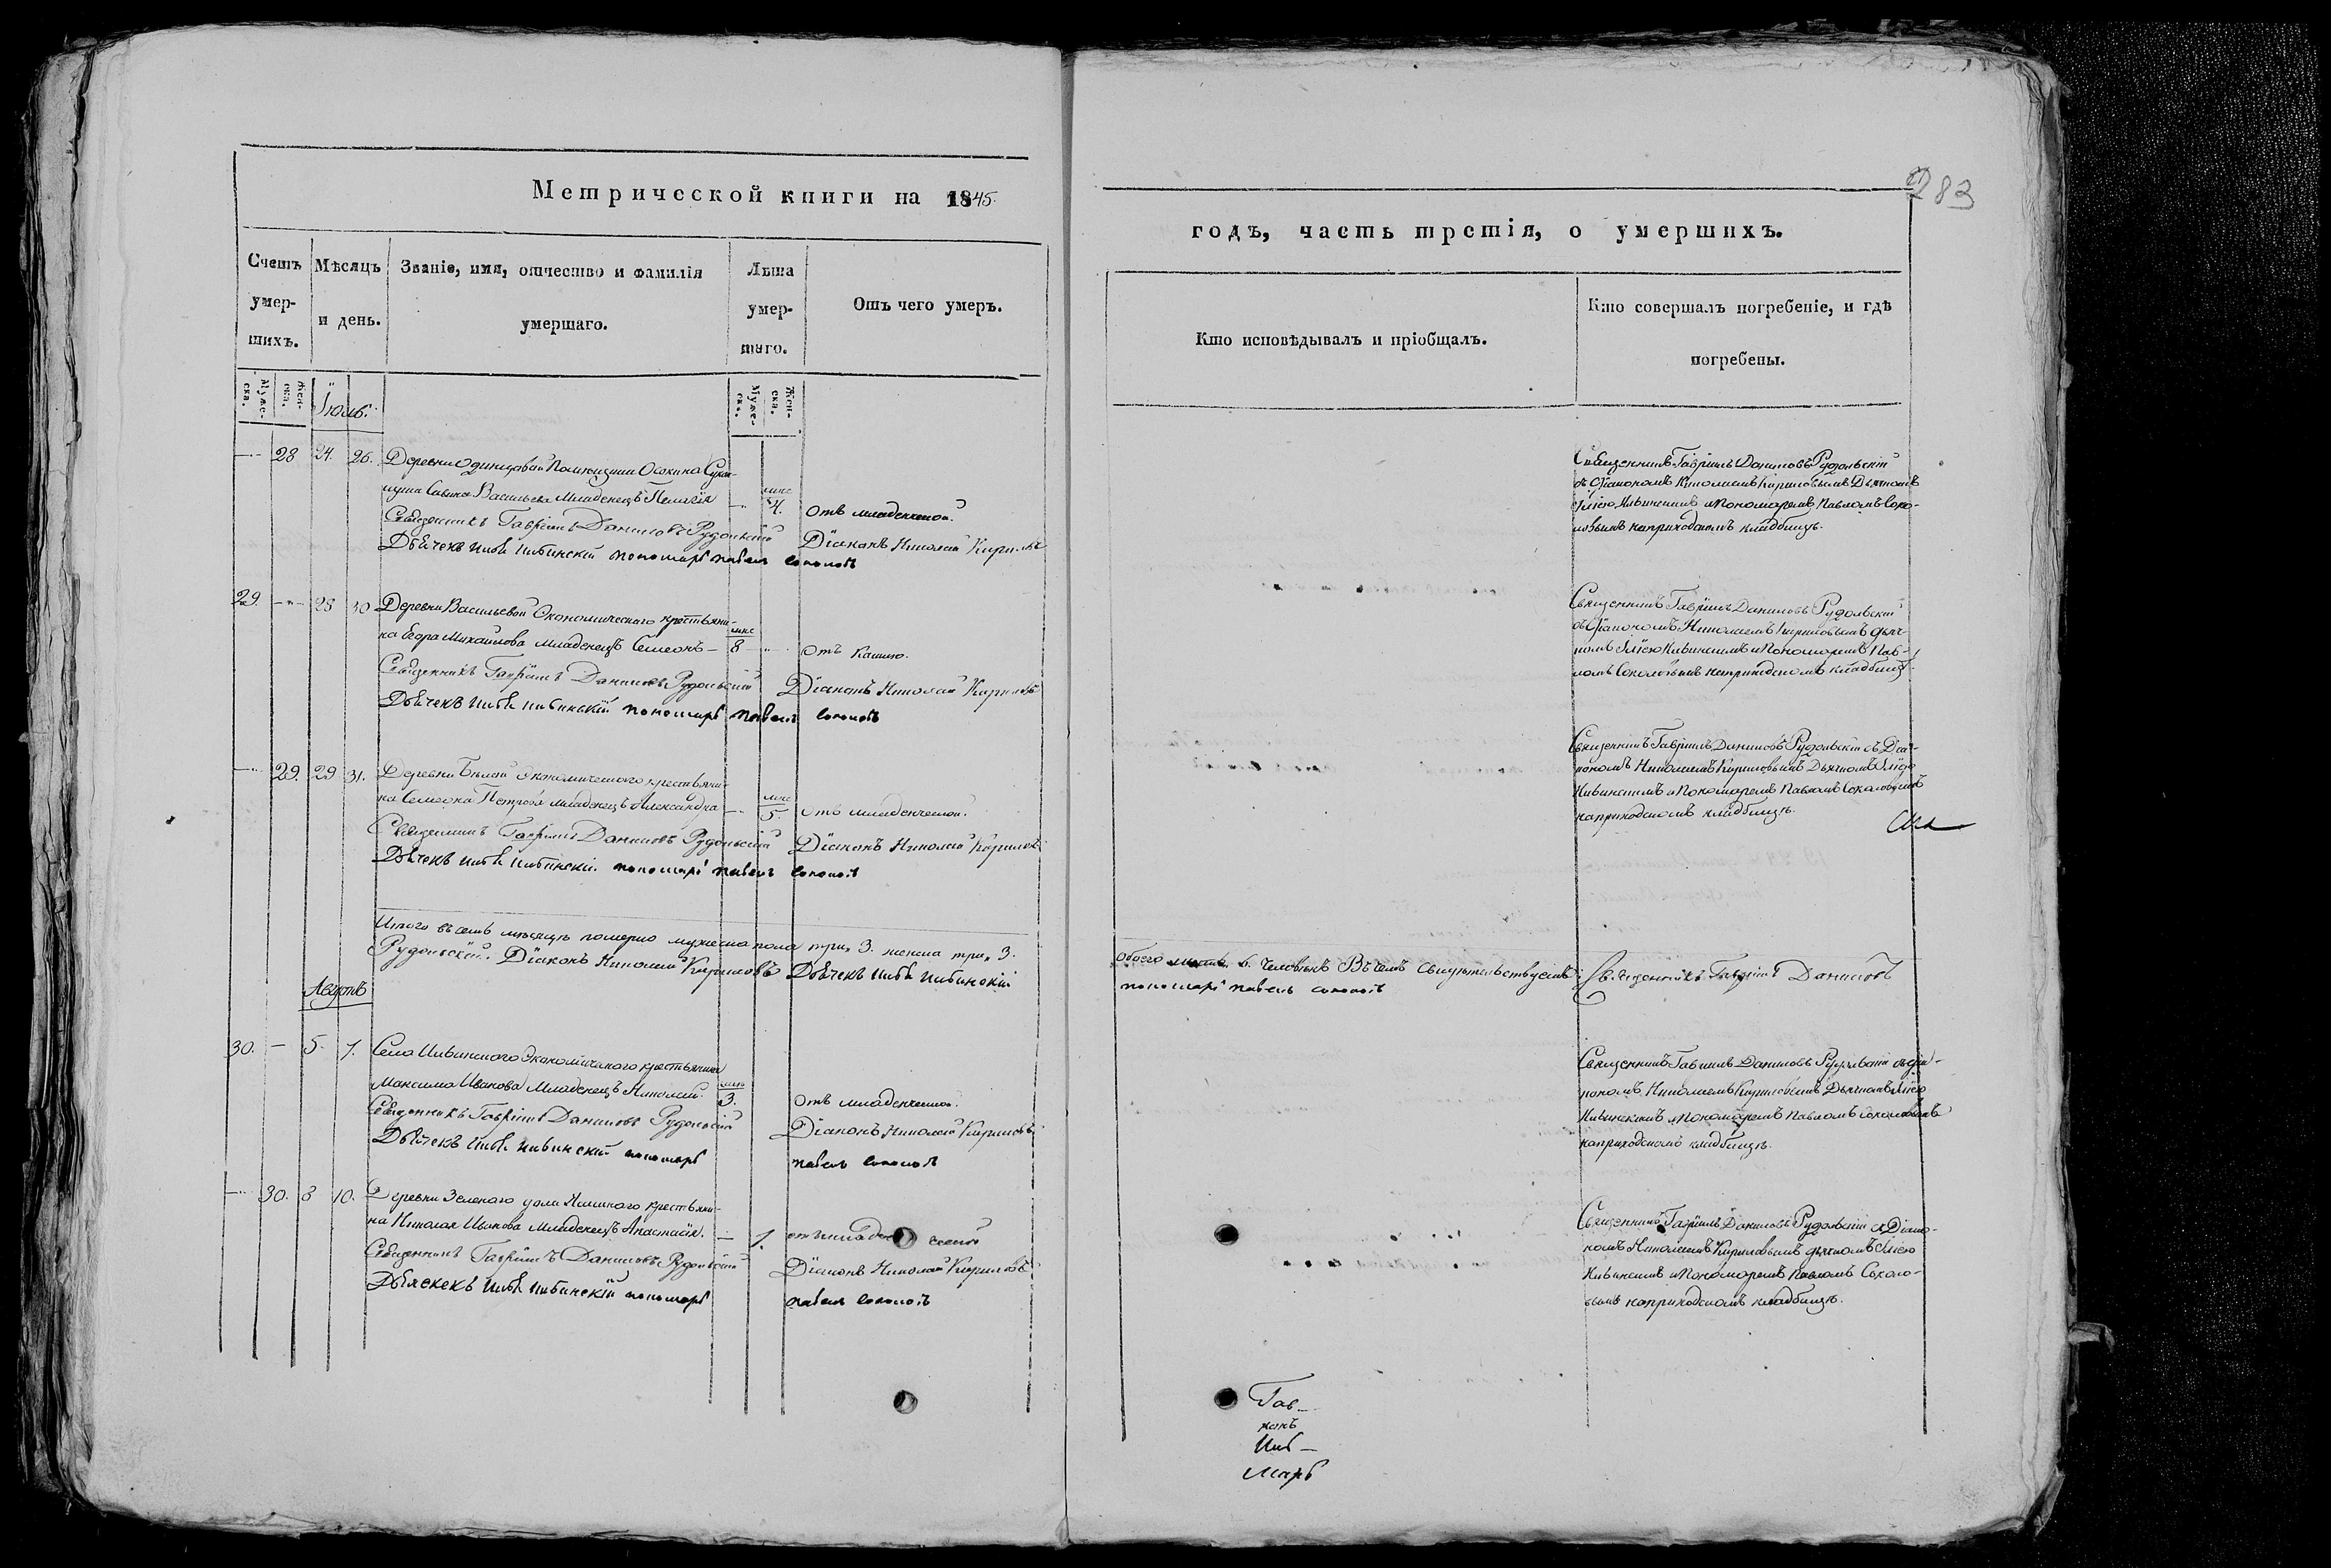 Метрической книги на 1845.
Счетъ умер-шихъ.
Мѣсяцъ и день.
Званіе, имя, отчество и фамилія умершаго.
Лѣта умер-шаго.
Отъ чего умеръ.
Муже-ска.
Жен-ска.
Муже-ска.
Жен-ска.
Іюль.
28 24. 26. Деревни Одинцовой Помещицы
Савина Васильева Младенецъ Пелагія
мис 4. отъ младенческой.
Священникъ Гавріилъ Даниловъ Рудольскій Діаконъ Николай Кириловъ
Дьячекъ Ивинскій пономарь павелъ соколовъ
29. 28 30 Деревни Васильевой Экономическаго крестьяни-
на Егора Михайлова младенецъ Симеонъ 8 отъ Кашлю.
Священникъ Гавріилъ Даниловъ Рудольскій Діаконъ Николай Кириловъ
Дьячекъ Ивинскій пономарь павелъ соколовъ
29. 29 31. Деревни Экономическаго крестьяни-
на Семеона Петрова младенецъ Александра
5. отъ младенческой.
Священникъ Гавріилъ Даниловъ Рудольскій Діаконъ Николай Кириловъ
Дьячекъ Ивинскій пономарь павелъ соколовъ
Итого въ семъ месяце померло мужеска пола три 3. женска три 3.
Рудольскій. Діаконъ Николай Кириловъ Дьячекъ Ивинскій
Августъ
30. 5. 7. Села Ивинскаго Экономическаго крестьянина
Максима Иванова Младенецъ Николай.
3. отъ младенческой.
Священникъ Гавріилъ Даниловъ Рудольскій Діаконъ Николай Кириловъ
Дьячекъ Ивинскій пономарь павелъ соколовъ
30. 8 10. Деревни Зеленаго крестьяни-
на Николая Иванова Младенецъ Анастасія. 1.
Священникъ Гавріилъ Даниловъ Рудольскій Діаконъ Николай Кириловъ
Ивинскій пономарь павелъ соколовъ
283
годъ, часть третія, о умершихъ.
Кто исповѣдывалъ и пріобщалъ.
Кто совершалъ погребеніе, и гдѣ погребены.
Священникъ Гавріилъ Даниловъ Рудольскій
съ Діакономъ Николаемъ Кириловымъ Дьячкомъ
Ивинскимъ и Пономаремъ Павломъ Соко-
ловымъ на приходскомъ кладбище.
Священникъ Гавріилъ Даниловъ Рудольскій
съ Діакономъ Николаемъ Кириловымъ дьяч-
комъ Ивинскимъ и Пономаремъ Пав-
ломъ Соколовымъ на приходскомъ кладбище
Священникъ Гавріилъ Даниловъ Рудольскій съ Діа-
кономъ Николаемъ Кириловымъ Дьячкомъ
Ивинскимъ и Пономаремъ Павломъ Соколовымъ
на приходскомъ кладбище.
обоего 6. человѣкъ Въ чемъ свидетельствуемъ: Священникъ Гавріилъ Даниловъ
пономарь павелъ соколовъ
Священникъ Гавріилъ Даниловъ Рудольскій съ Діа-
кономъ Николаемъ Кириловымъ Дьячкомъ
Ивинскимъ и Пономаремъ Павломъ Соколовымъ
на приходскомъ кладбище.
Священникъ Гавріилъ Даниловъ Рудольскій съ Діако-
номъ Николаемъ Кириловымъ дьячкомъ
Ивинскимъ и Пономаремъ Павломъ Соколо-
вымъ на приходскомъ кладбище.
Гав-
конъ
Ив-
марь